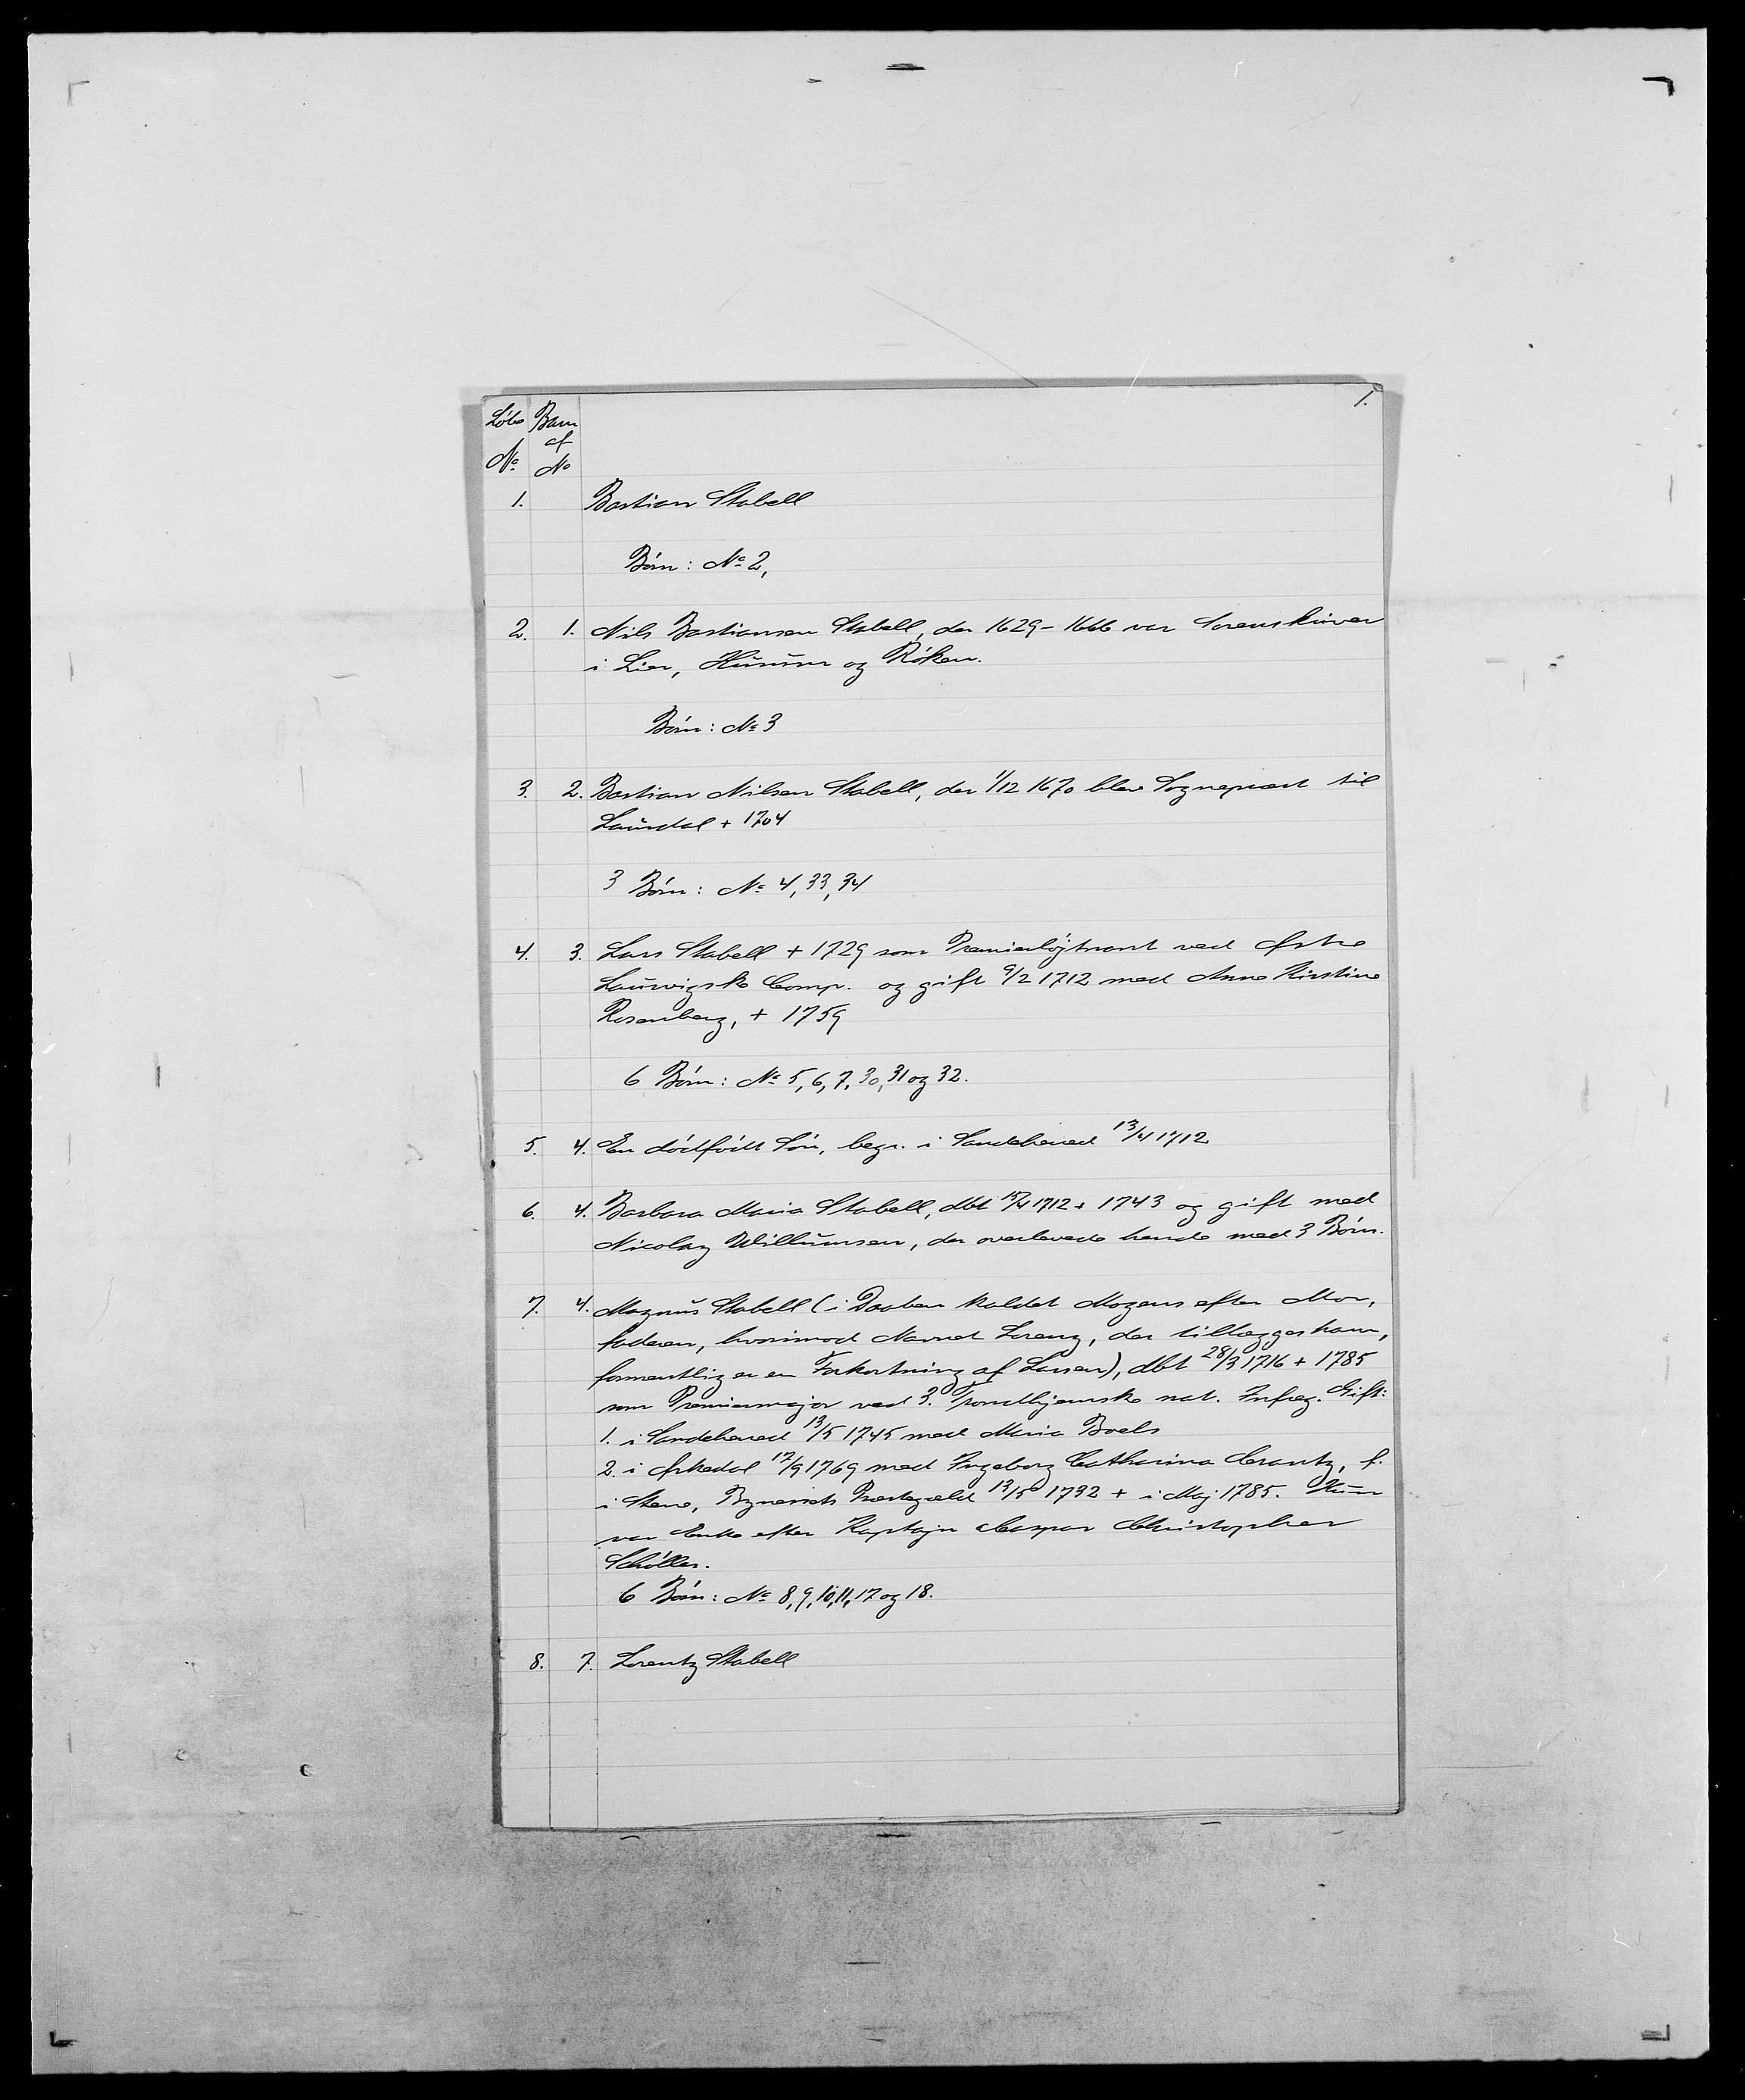 1.
Løbe Barn
af
No No
1. Bastian Stabell
Børn: No 2,
2. 1. Nils Bastiansen Stabell, der 1629-1666 var Sorenskriver
i Lier, Hurum og Røken.
Børn: No 3
3. 2. Bastian Nilsen Stabell, der 1/12 1670 blev Sogneprest til
Laurdal + 1704
3 Børn: No 4, 33, 34
4. 3. Lars Stabell + 1729 som Premierløjtnant ved østre
Laurvigske Comp. og gift 9/2 1712 med Anne Kirstine
Rosenberg, + 1759
6 Børn: No 5, 6, 7, 30, 31 og 32.
5. 4. En dødfødt Søn, begr. i Sandehered 13/4 1712
6. 4. Barbara Maria Stabell, dbt 15/4 1712 + 1743 og gift med
Nicolay Willumsen, der overlevede hende med 3 Børn.
7. 4. Magnus Stabell (i Daaben kaldet Mogens efter Mor,
faderen, hvorimod Navnet Lorenz, der tillægges ham,
formentlig er en Forkortning af Larsen), dbt 28/3 1716 + 1785
som Premiermajor ved 3. Trondhjemske nat. Infreg. Gift:
1. i Sandehered 13/5 1745 med Maria Boels
2. i Ørkedal 17/9 1769 med Ingeborg Catharina Crantz, f.
i Stene, Bynessets Prestegæld 13/5 1732 + i Maj 1785. Hun
var Enke efter Kaptajn Caspar Christopher
Schøller.
6 Børn: No 8, 9, 10, 11, 17 og 18.
8. 7. Lorentz Stabell